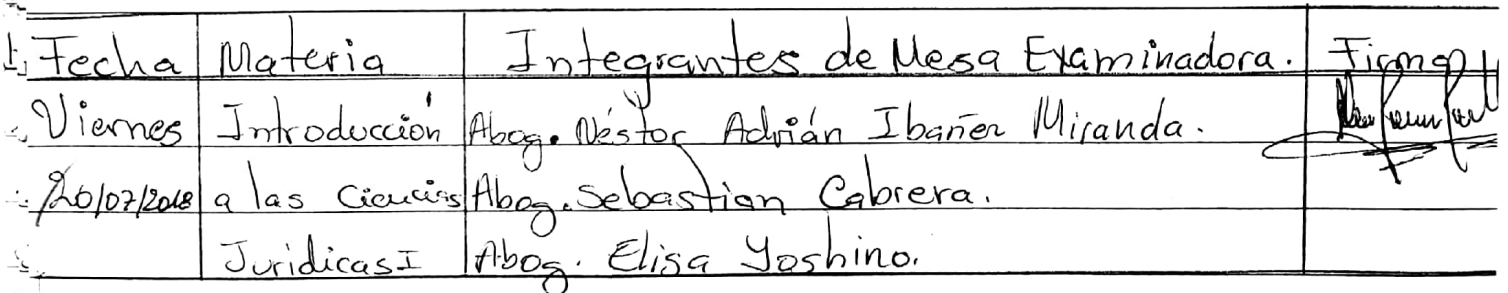 Fecha Materia Integrantes de Mesa Examinadora. Firma
Viernes Introducción Abog. Néstor Adrián Ibañez Miranda.
20/07/2018 a las Ciencias Abog. Sebastian Cabrera.
Juridicas I Abog. Elisa Yoshino.